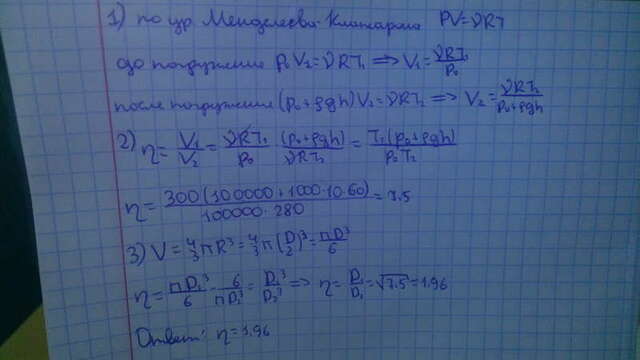 1) по ур. Менделеева-Клапейрона PV=νRT
до погружения p₀V₁=νRT₁ ⟹ V₁=νRT₁/p₀
после погружения (p₀+ρgh)V₂=νRT₂ ⟹ V₂=νRT₂/(p₀+ρgh)
2) η=V₁/V₂=νRT₁/p₀·(p₀+ρgh)/νRT₂=T₁(p₀+ρgh)/p₀T₂
η=300(100000+1000·10·60)/100000·280=7.5
3) V=4/3πR³=4/3π(D/2)³=πD³/6
η=πD₁³/6·6/πD₂³=D₁³/D₂³⟹η=D₁/D₂=√7.5=1.96
Ответ: η=1.96